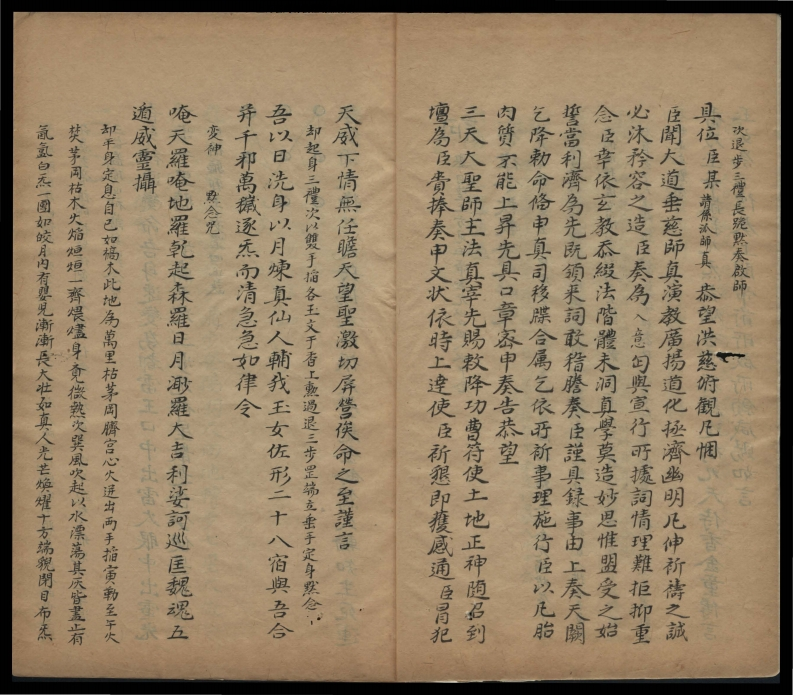 次退步三禮長跪默奏啟師
具位臣某請係治師真 恭望洪慈俯觀凡悃
臣聞大道垂慈師真演教廣揚道化拯濟幽明凡伸祈禱之誠
必沐矜容之造臣奏為入意匄與宣行所據詞情理難拒抑重
念臣幸依玄教忝綴法階體未洞真學莫造妙思惟盟受之始
誓當利濟為先既領來詞敢稽謄奏臣謹具錄事由上奏天闕
乞降勅命俻申真司移牒合属乞依所祈事理施行臣以凡胎
肉質不能上昇先具口章密申奏告恭望
三天大聖師主法真宰先賜敕降功曹符使土地正神随召到
壇為臣賫捧奏申文狀依時上達使臣祈懇即獲感通臣冒犯
天威下情無任瞻天望聖激切屏營俟命之至謹言
却起身三禮次以雙手掐各玉文于香上熏過退三步罡端立垂手定身默念
吾以日洗身以月煉真仙人輔我玉女佐形二十八宿與吾合
并千邪萬穢逐炁而清急急如律令
变神 默念咒
唵天羅唵地羅乾起森羅日月渺羅大吉利娑訶巡匡魏魂五
遁威靈攝
却平身定息自己如槁木此地為萬里枯茅岡臍宮心火迸出两手掐寅勒至午火
焚茅岡枯木火焰烜烜一齊煨燼身竟微熱次巽風吹起以水漂蕩其灰皆盡止有
氤氳白炁一團如皎月内有嬰児漸漸長大壯如真人光芒煥耀十方端貌閉目布炁